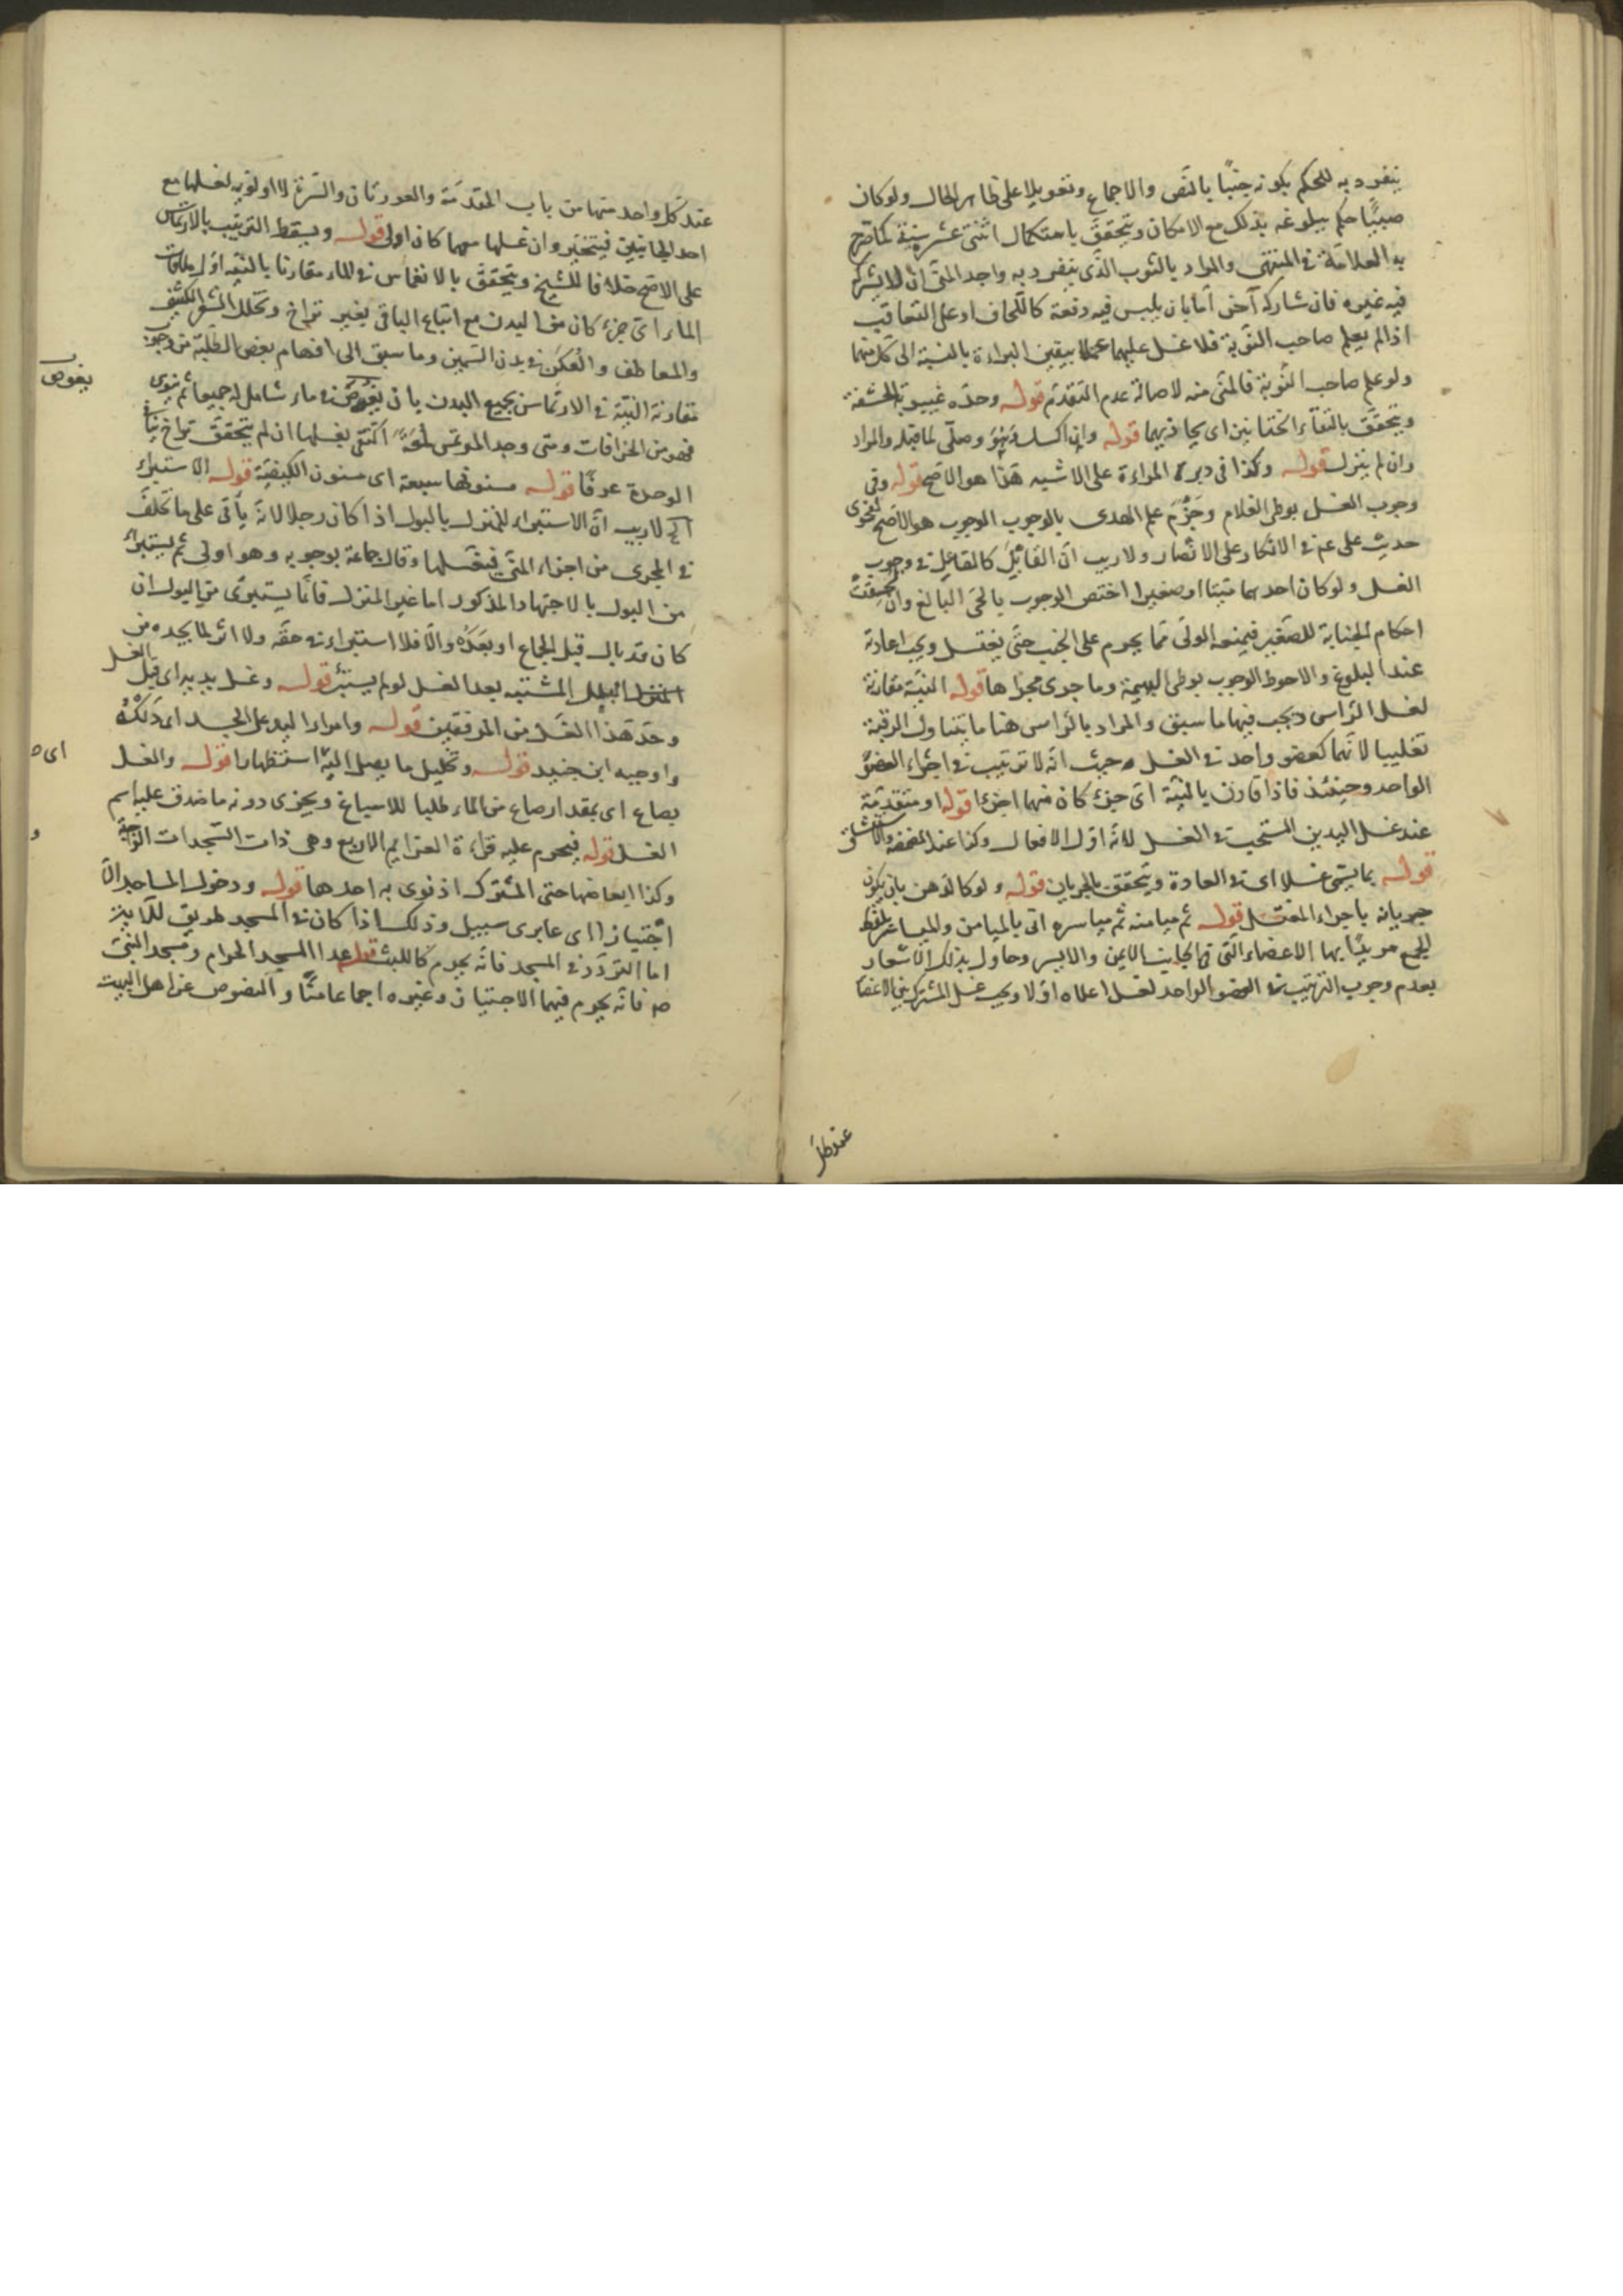 ينفرد به للحكم بكونه جنبًا بالنص والاجماع وتعويلا على ظاهر الحال ولو كان
صبيًّا حكم ببلوغه بذلك مع الامكان ويتحقق باستكمال اثنتى عشر سنة كما صرح
به العلامة في المنتهى والمراد بالثوب الذى ينفرد به واجد المنى ان لا يشركه
فيه غيره فان شاركه آخر اما بان يلبس فيه دفعة كاللحاف او على التعاقب
اذا لم يعلم صاحب النوبة فلا غسل عليهما عملا بيقين البراءة بالنسبة الى كل منهما
ولو علم صاحب النوبة فالمنى منه لاصالة عدم التقدم قوله وحده غيبوبة الحشفة
ويتحقق بالتقاء الختانين اى يحاذيهما قوله وان اكسل وصلّى لما قبله والمراد
وان لم ينزل قوله وكذا في دبر المراءة على الاشبه هذا هو الاصح قوله وفى
وجوب الغسل بوطى الغلام وجزم علم الهدى بالوجوب الوجوب هو الاصح لفحوى
حديث على عم في الانكار على الانصار ولا ريب ان القابل كالفاعل في وجوب
الغسل ولو كان احدهما ميتا او صغيرا اختص الوجوب بالحى البالغ وان لحقت
احكام الجنابة للصغير فيمنعه الولى مما يحرم على الجنب حتى يغتسل ويجب اعادته
عند البلوغ والاحوط الوجوب بوطى البهيمة وما جرى مجراها قوله النية مقارنة
لغسل الراس ويجب فيها ما سبق والمراد بالراس هنا ما يتناول الرقبة
تغليبا لانهما كعضو واحد في الغسل حيث انه لا ترتيب في اجزاء العضو
الواحد وحينئذ فاذا قارن بالنية اى جزء كان منهما اجزا قوله او متقدمة
عند غسل اليدين المستحب في الغسل لانه اول الافعال وكذا عند المضمضة والاستنشاق
قوله بما يسمى غسلا اى في العادة ويتحقق بالجريان قوله ولو كالدهن بان يكون
جريانه باجراء المغتسل قوله ثم ميامنه ثم مياسره اتى بالميامن والمياسر بلفظ
الجمع مريدًا بها الاعضاء التى في الجانب الايمن والايسر وحاول بذلك الاشعار
بعدم وجوب الترتيب في العضو الواحد لغسل اعلاه اولا ويجب غسل المشترك بين الاعضا
عند كل
عند كل واحد منهما من باب المقدمة والعورتان والسرة لا اولوية لغسلها مع
احد الجانبين فيتخير وان غسلها معهما كان اولى قوله ويسقط الترتيب بالارتماس
على الاصح خلافا للشيخ ويتحقق بالانغماس في الماء مقارنا بالنية اول ملاقات
الماء اى جزء كان من البدن مع اتباع الباقى بغير تراخ وتخلل الشعر الكثيف
والمعاطف والعكن في بدن السمين وما سبق الى افهام بعض الطلبة من وجوب
مقارنة النية في الارتماس بجميع البدن بان يغوص في ماء شامل له جميعا ثم ينوى
يغوص
فهو من الخرافات ومتى وجد المرتمس لمعة اكتفى بغسلها ان لم يتحقق تراخ
الوحدة عرفًا قوله مسنونها سبعة اى مسنون الكيفية قوله الاستبراء
لا ريب ان الاستبراء للمنزل بالبول اذا كان رجلا لانه يأتى على ما تخلف
في المجرى من اجزاء المنى فيغسلها وقال جماعة بوجوبه وهو اولى ثم يستبرئ
من البول بالاجتهاد المذكور اما غير المنزل فانما يستبرى من البول ان
كان قد بال قبل الجماع او بعده والا فلا استبراء في حقه ولا اثر لما يجده من
البلل المشتبه بعد الغسل لو لم يستبرئ قوله وغسل يديه اى قبل الغسل
وحد هذا الغسل من المرفقين قوله وامرار اليد على الجسد اى دلكه
اى
واوجبه ابن جنيد قوله وتخليل ما يصل اليه استظهارا قوله والغسل
بصاع اى بمقدار صاع من الماء طلبا للاسباغ ويجزى دونه ما صدق عليه اسم
و
الغسل قوله فيحرم عليه قراءة العزايم الاربع وهى ذات السجدات الواجبة
وكذا ابعاضها حتى المشترك اذ نوى به احدها قوله ودخول المساجد الا
اجتيازا اى عابرى سبيل وذلك اذا كان في المسجد طريق للاجتياز
اما التردد في المسجد فانه يحرم كاللبث قوله عدا المسجد الحرام ومسجد النبى
ص فانه يحرم فيهما الاجتياز وغيره اجماعا منّا والنصوص عن اهل البيت